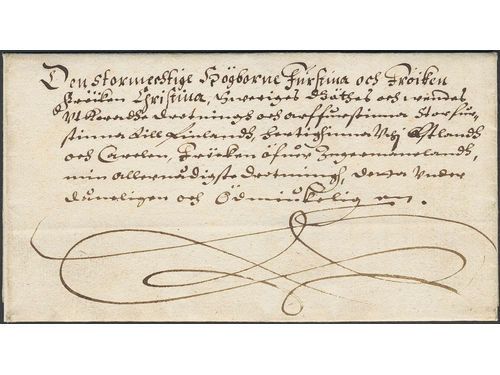 Den Stormecktige Högborne Furstinna och Fröiken
Fröiken Christina, Sweriges Göthes och Wendes
Uthkoradhe drotningh och arffurstinna Storfur-
stinna till Finlandh, hertighinna Uthi Estlandh
och Carelen, Fröken öfwer Ingermanelandh,
min allernådigste drotningh, detta Under
dåneligen och Ödmiukelig an.